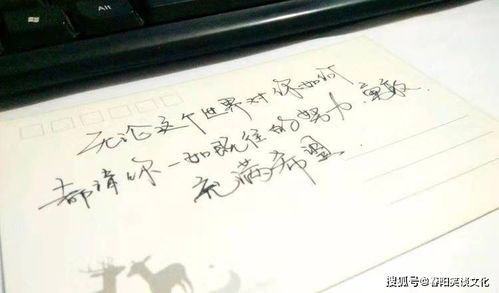 Alt
无论这个世界对你如何
都请你一如既往的努力 勇敢
充满希望
搜狐号@春阳笑谈文化